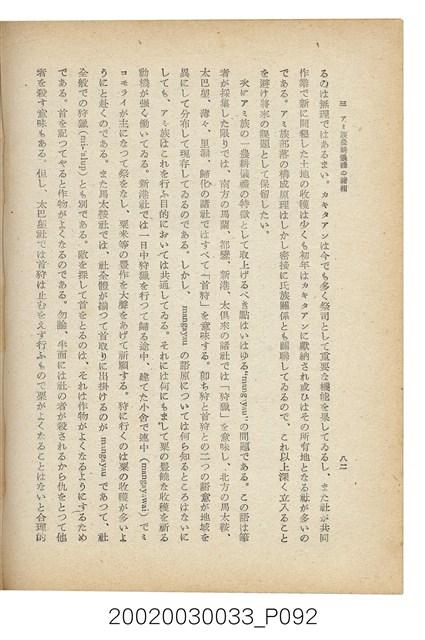 三 アミ族農耕儀禮の諸相
八二
るのは無理ではあるまい。カキタアンは今でも多く祭司として重要な機能を果してゐるし、また社が共同
作業で新に開墾した土地の收穫は少くも初年はカキタアンに獻納され或ひはその所有地となる社が多いの
である。アミ族部落の構成原理はしかし密接に氏族關係とも關聯してゐるので、これ以上深く立入ること
を避け將來の課題として保留したい。
次にアミ族の一農耕儀禮の特徴として取上げるべき點はいはゆる“mangayau”の問題である。この語は筆
者が採集した限りでは、南方の馬蘭、都巒、新港、太俱來の諸社では「狩獵」を意味し、北方の馬太鞍、
太巴塱、薄々、里漏、歸化の諸社ではすべて「首狩」を意味する。卽ち狩と首狩との二つの語意が地域を
異にして分布して現存してゐるのである。しかし、mangayau の語原については何ら知るところはないに
しても、アミ族はこれを行ふ目的においては共通してゐる。それには何にもまして粟の豐饒な收穫を祈る
動機が强く働いてゐる。新港社では一日中狩獵を行つて歸る途中、建てた小舍で連中(mangayawai)でミ
コモライが主になつて祭をなし、粟米等の豐作を大聲をあげて祈願する。狩に行くのは粟の收穫が多いよ
うにと赴くのである。また馬太鞍社では、社全體が揃つて首取りに出掛けるのが mangayau であつて、社
全般での狩獵(mi-alup)とも別である。敵を探して首をとるのは、それは作物がよくなるようにするため
である。首を祀つてやると作物がよくなるのである。勿論、半面には社の者が殺されるから仇をとつて他
者を殺す意味もある。但し、太巴塱社では首狩は止むをえず行ふもので粟がよくなることはないと合理的
20020030033_P092